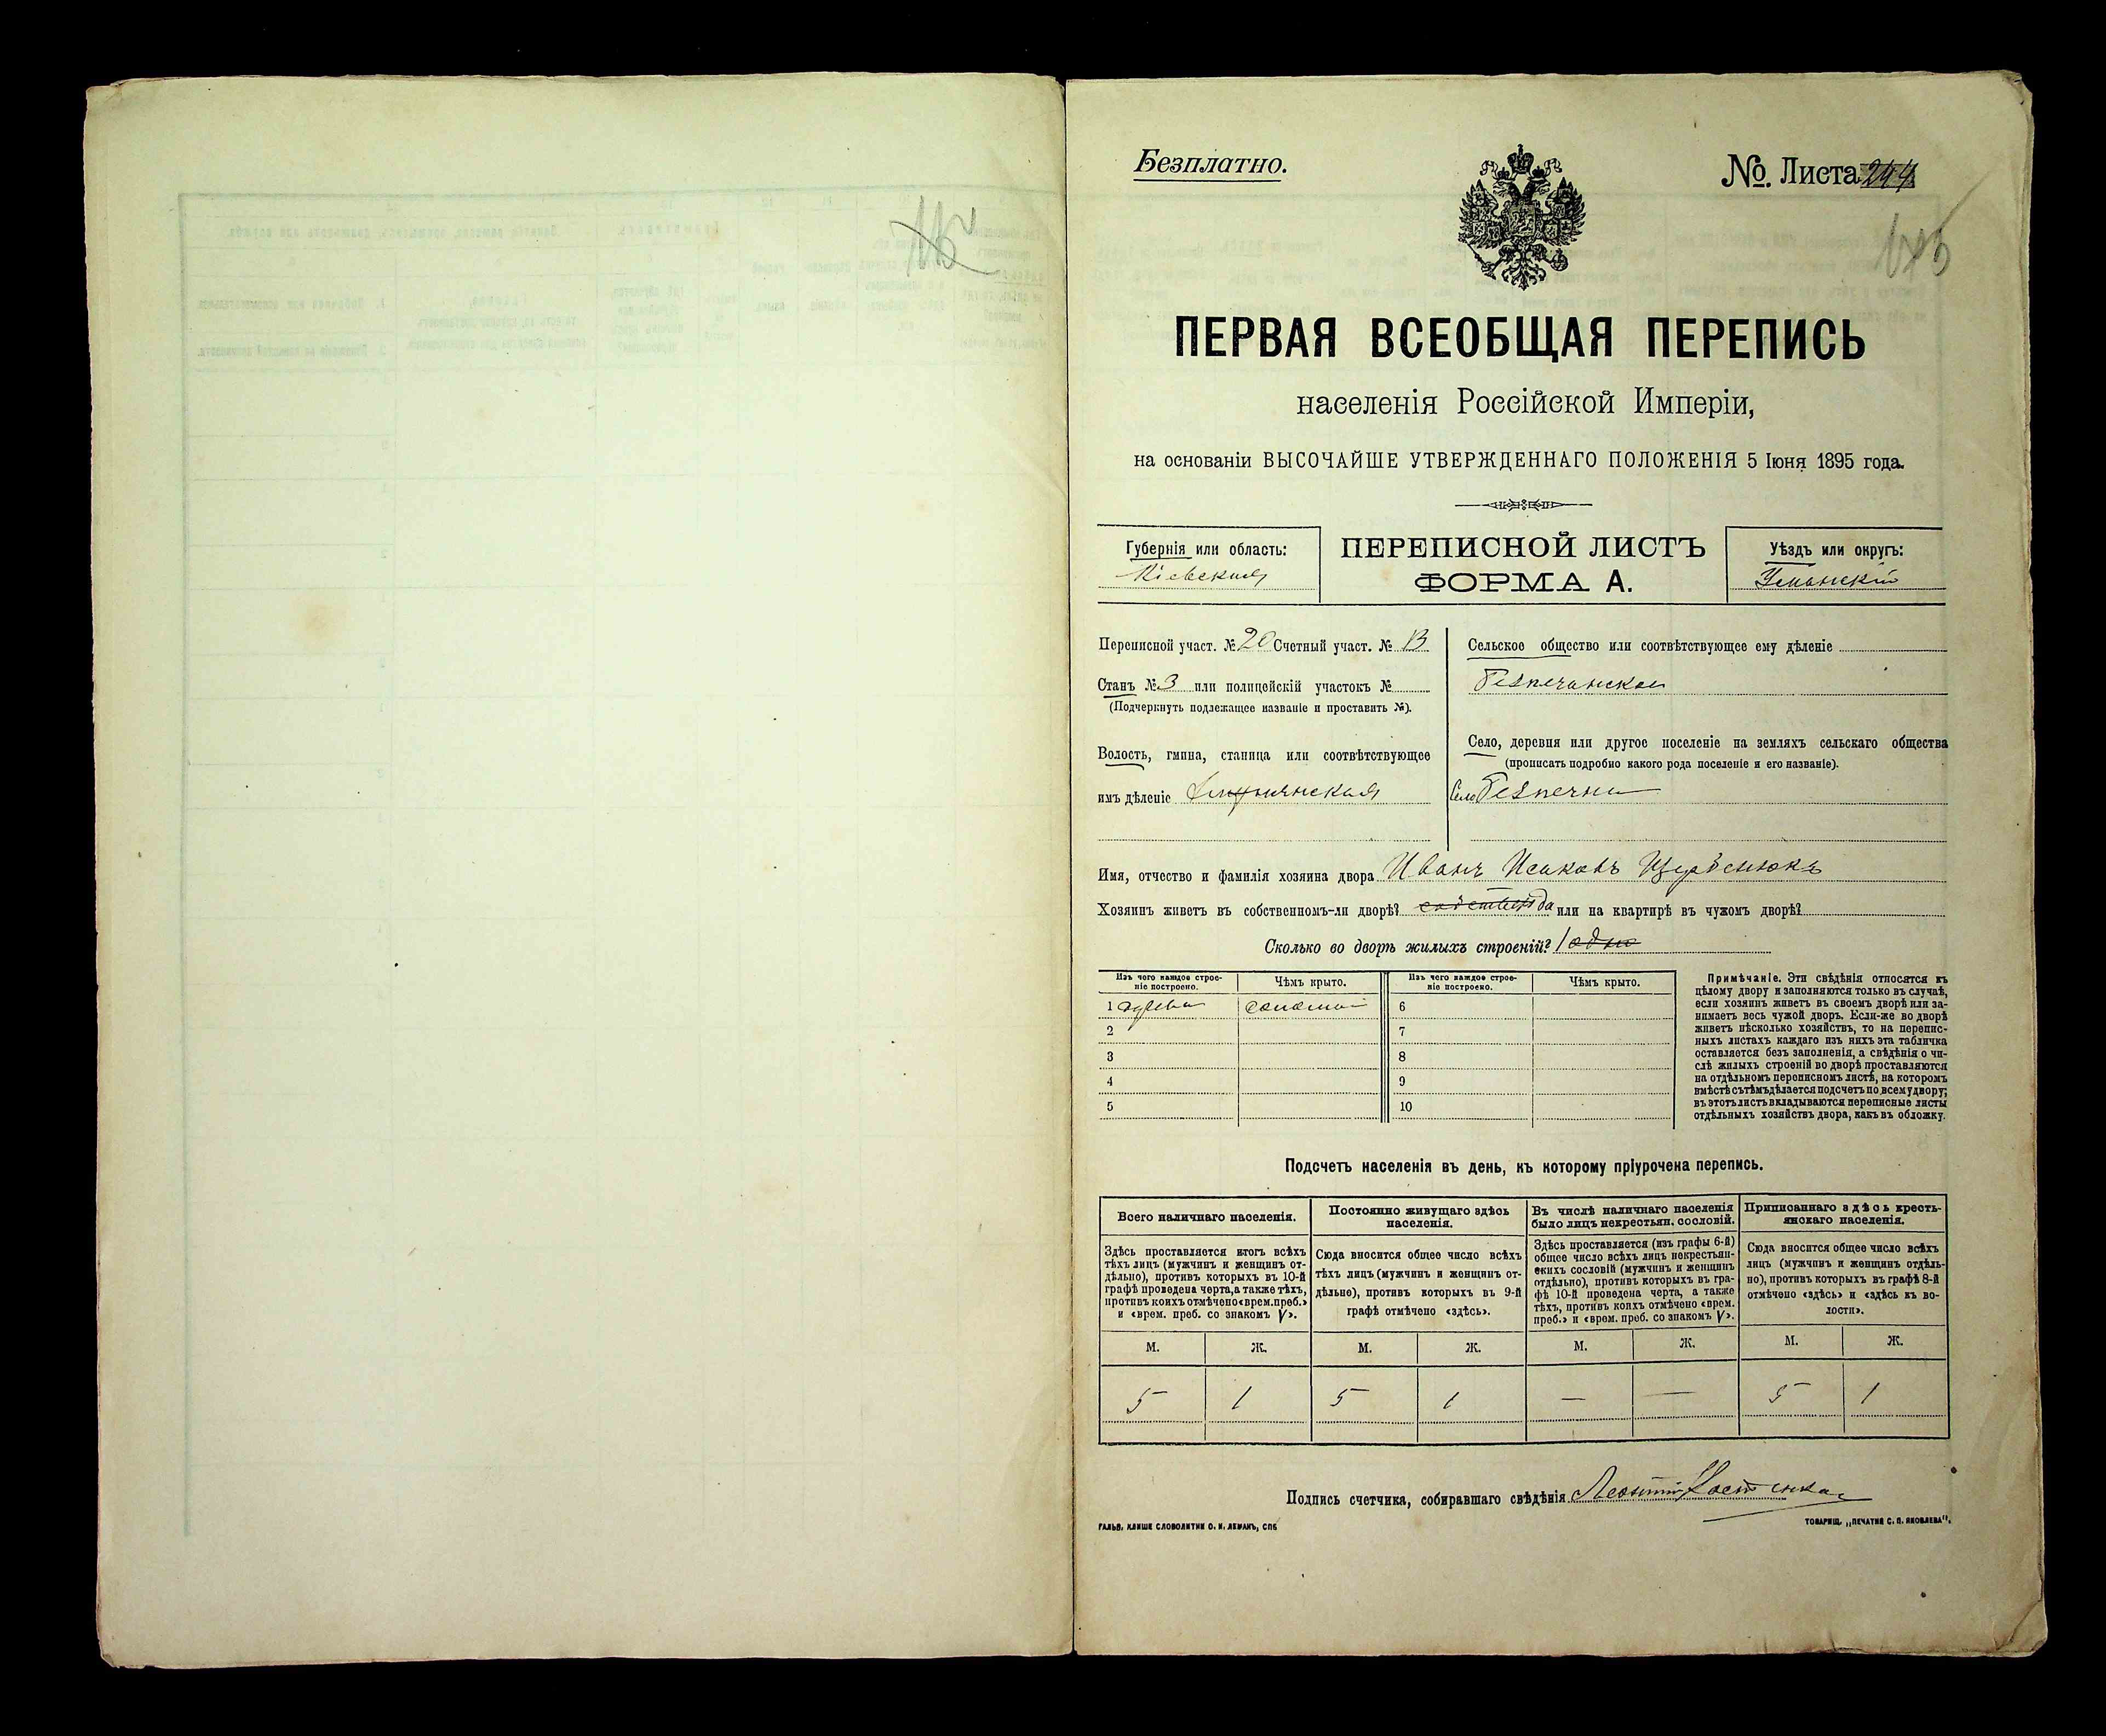 Безплатно.
№. Листа
ПЕРВАЯ ВСЕОБЩАЯ ПЕРЕПИСЬ
населенія Россійской Имперіи,
на основаніи ВЫСОЧАЙШЕ УТВЕРЖДЕННАГО ПОЛОЖЕНІЯ 5 Іюня 1895 года.
Губернія или область:
Кіевская
ПЕРЕПИСНОЙ ЛИСТЪ
ФОРМА А.
Уѣздъ или округъ:
Уманскій
Переписной участ. № 20 Счетный участ. №
Станъ № 3 или полицейскій участокъ №
(Подчеркнуть подлежащее названіе и проставить №).
Волость, гмина, станица или соотвѣтствующее
имъ дѣленіе
Сельское общество или соотвѣтствующее ему дѣленіе
Безпечанское
Село, деревня или другое поселеніе на земляхъ сельскаго общества
(прописать подробно какого рода поселеніе и его названіе).
Село Безпечна
Имя, отчество и фамилія хозяина двора Иванъ Исаковъ
Хозяинъ живетъ въ собственномъ-ли дворѣ? да или на квартирѣ въ чужомъ дворѣ?
Сколько во дворѣ жилыхъ строеній? 1 одно
Изъ чего каждое строе-
ніе построено.
Чѣмъ крыто.
Изъ чего каждое строе-
ніе построено.
Чѣмъ крыто.
1 дерева соломой 6
2 7
3 8
4 9
5 10
Примѣчаніе. Эти свѣдѣнія относятся къ
цѣлому двору и заполняются только въ случаѣ,
если хозяинъ живетъ въ своемъ дворѣ или за-
нимаетъ весь чужой дворъ. Если-же во дворѣ
живетъ нѣсколько хозяйствъ, то на перепис-
ныхъ листахъ каждаго изъ нихъ эта табличка
оставляется безъ заполненія, а свѣдѣнія о чи-
слѣ жилыхъ строеній во дворѣ проставляются
на отдѣльномъ переписномъ листѣ, на которомъ
вмѣстѣ съ тѣмъ дѣлается подсчетъ по всему двору;
въ этотъ листъ вкладываются переписные листы
отдѣльныхъ хозяйствъ двора, какъ въ обложку.
Подсчетъ населенія въ день, къ которому пріурочена перепись.
Всего наличнаго населенія.
Здѣсь проставляется итогъ всѣхъ
тѣхъ лицъ (мужчинъ и женщинъ от-
дѣльно), противъ которыхъ въ 10-й
графѣ проведена черта, а также тѣхъ,
противъ коихъ отмѣчено «врем. преб.»
и «врем. преб. со знакомъ V».
Постоянно живущаго здѣсь
населенія.
Сюда вносится общее число всѣхъ
тѣхъ лицъ (мужчинъ и женщинъ от-
дѣльно), противъ которыхъ въ 9-й
графѣ отмѣчено «здѣсь».
Въ числѣ наличнаго населенія
было лицъ некрестьян. сословій.
Здѣсь проставляется (изъ графы 6-й)
общее число всѣхъ лицъ некрестьян-
скихъ сословій (мужчинъ и женщинъ
отдѣльно), противъ которыхъ въ гра-
фѣ 10-й проведена черта, а также
тѣхъ, противъ коихъ отмѣчено «врем.
преб.» и «врем. преб. со знакомъ V».
Приписаннаго здѣсь кресть-
янскаго населенія.
Сюда вносится общее число всѣхъ
лицъ (мужчинъ и женщинъ отдѣль-
но), противъ которыхъ въ графѣ 8-й
отмѣчено «здѣсь» и «здѣсь къ во-
лости».
М. Ж. М. Ж. М. Ж. М. Ж.
5 1 5 1 — — 5 1
Подпись счетчика, собиравшаго свѣдѣнія Леонтій Костенко
ГАЛЬВ. КЛИШЕ СЛОВОЛИТНИ О. И. ЛЕМАНЪ, СПБ
ТОВАРИЩ. „ПЕЧАТНЯ С. П. ЯКОВЛЕВА".